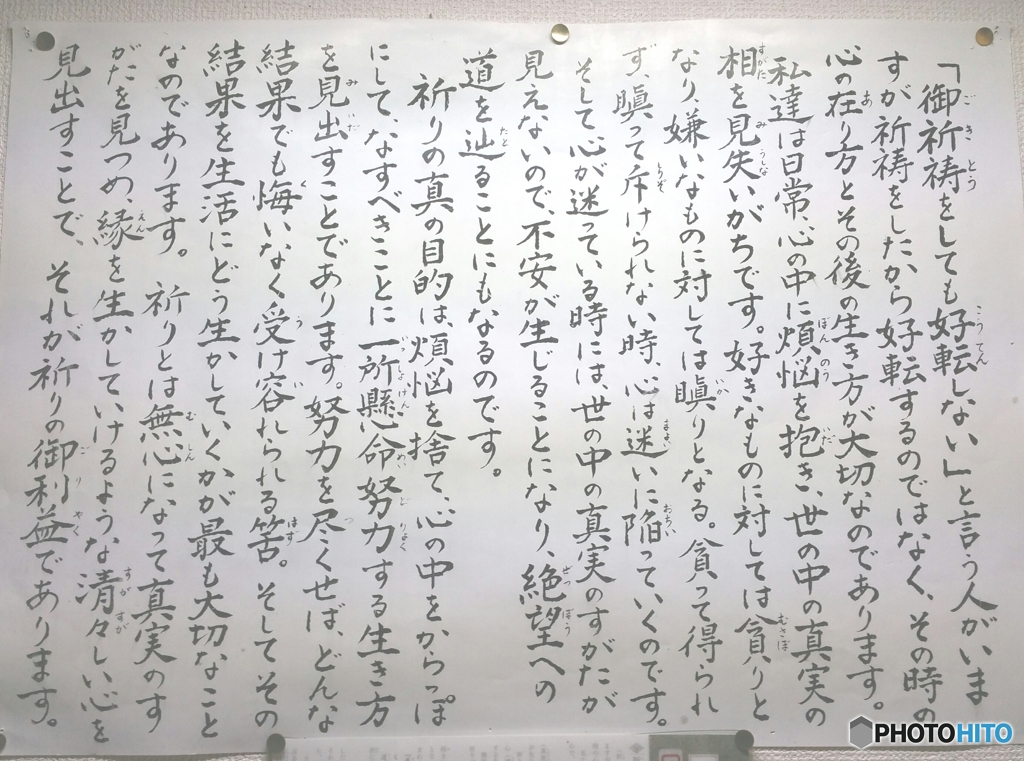 「御祈祷をしても好転しない」と言う人がいま
すが祈祷をしたから好転するのではなく、その時の
心の在り方とその後の生き方が大切なのであります。
私達は日常、心の中に煩悩を抱き、世の中の真実の
相を見失いがちです。好きなものに対しては貪りと
なり、嫌いなものに対しては瞋りとなる。貪って得られ
ず、瞋って斥けられない時、心は迷いに陥っていくのです。
そして、心が迷っている時には、世の中の真実のすがたが
見えないので、不安が生じることになり、絶望への
道を辿ることにもなるのです。
祈りの真の目的は、煩悩を捨て、心の中をからっぽ
にして、なすべきことに一所懸命努力する生き方
を見出すことであります。努力を尽くせば、どんな
結果でも悔いなく受け容れられる筈。そしてその
結果を生活にどう生かしていくかが最も大切なこと
なのであります。祈りとは無心になって真実のす
がたを見つめ、縁を生かしていけるような清々しい心を
見出すことで、それが祈りの御利益であります。
PHOTOHITO